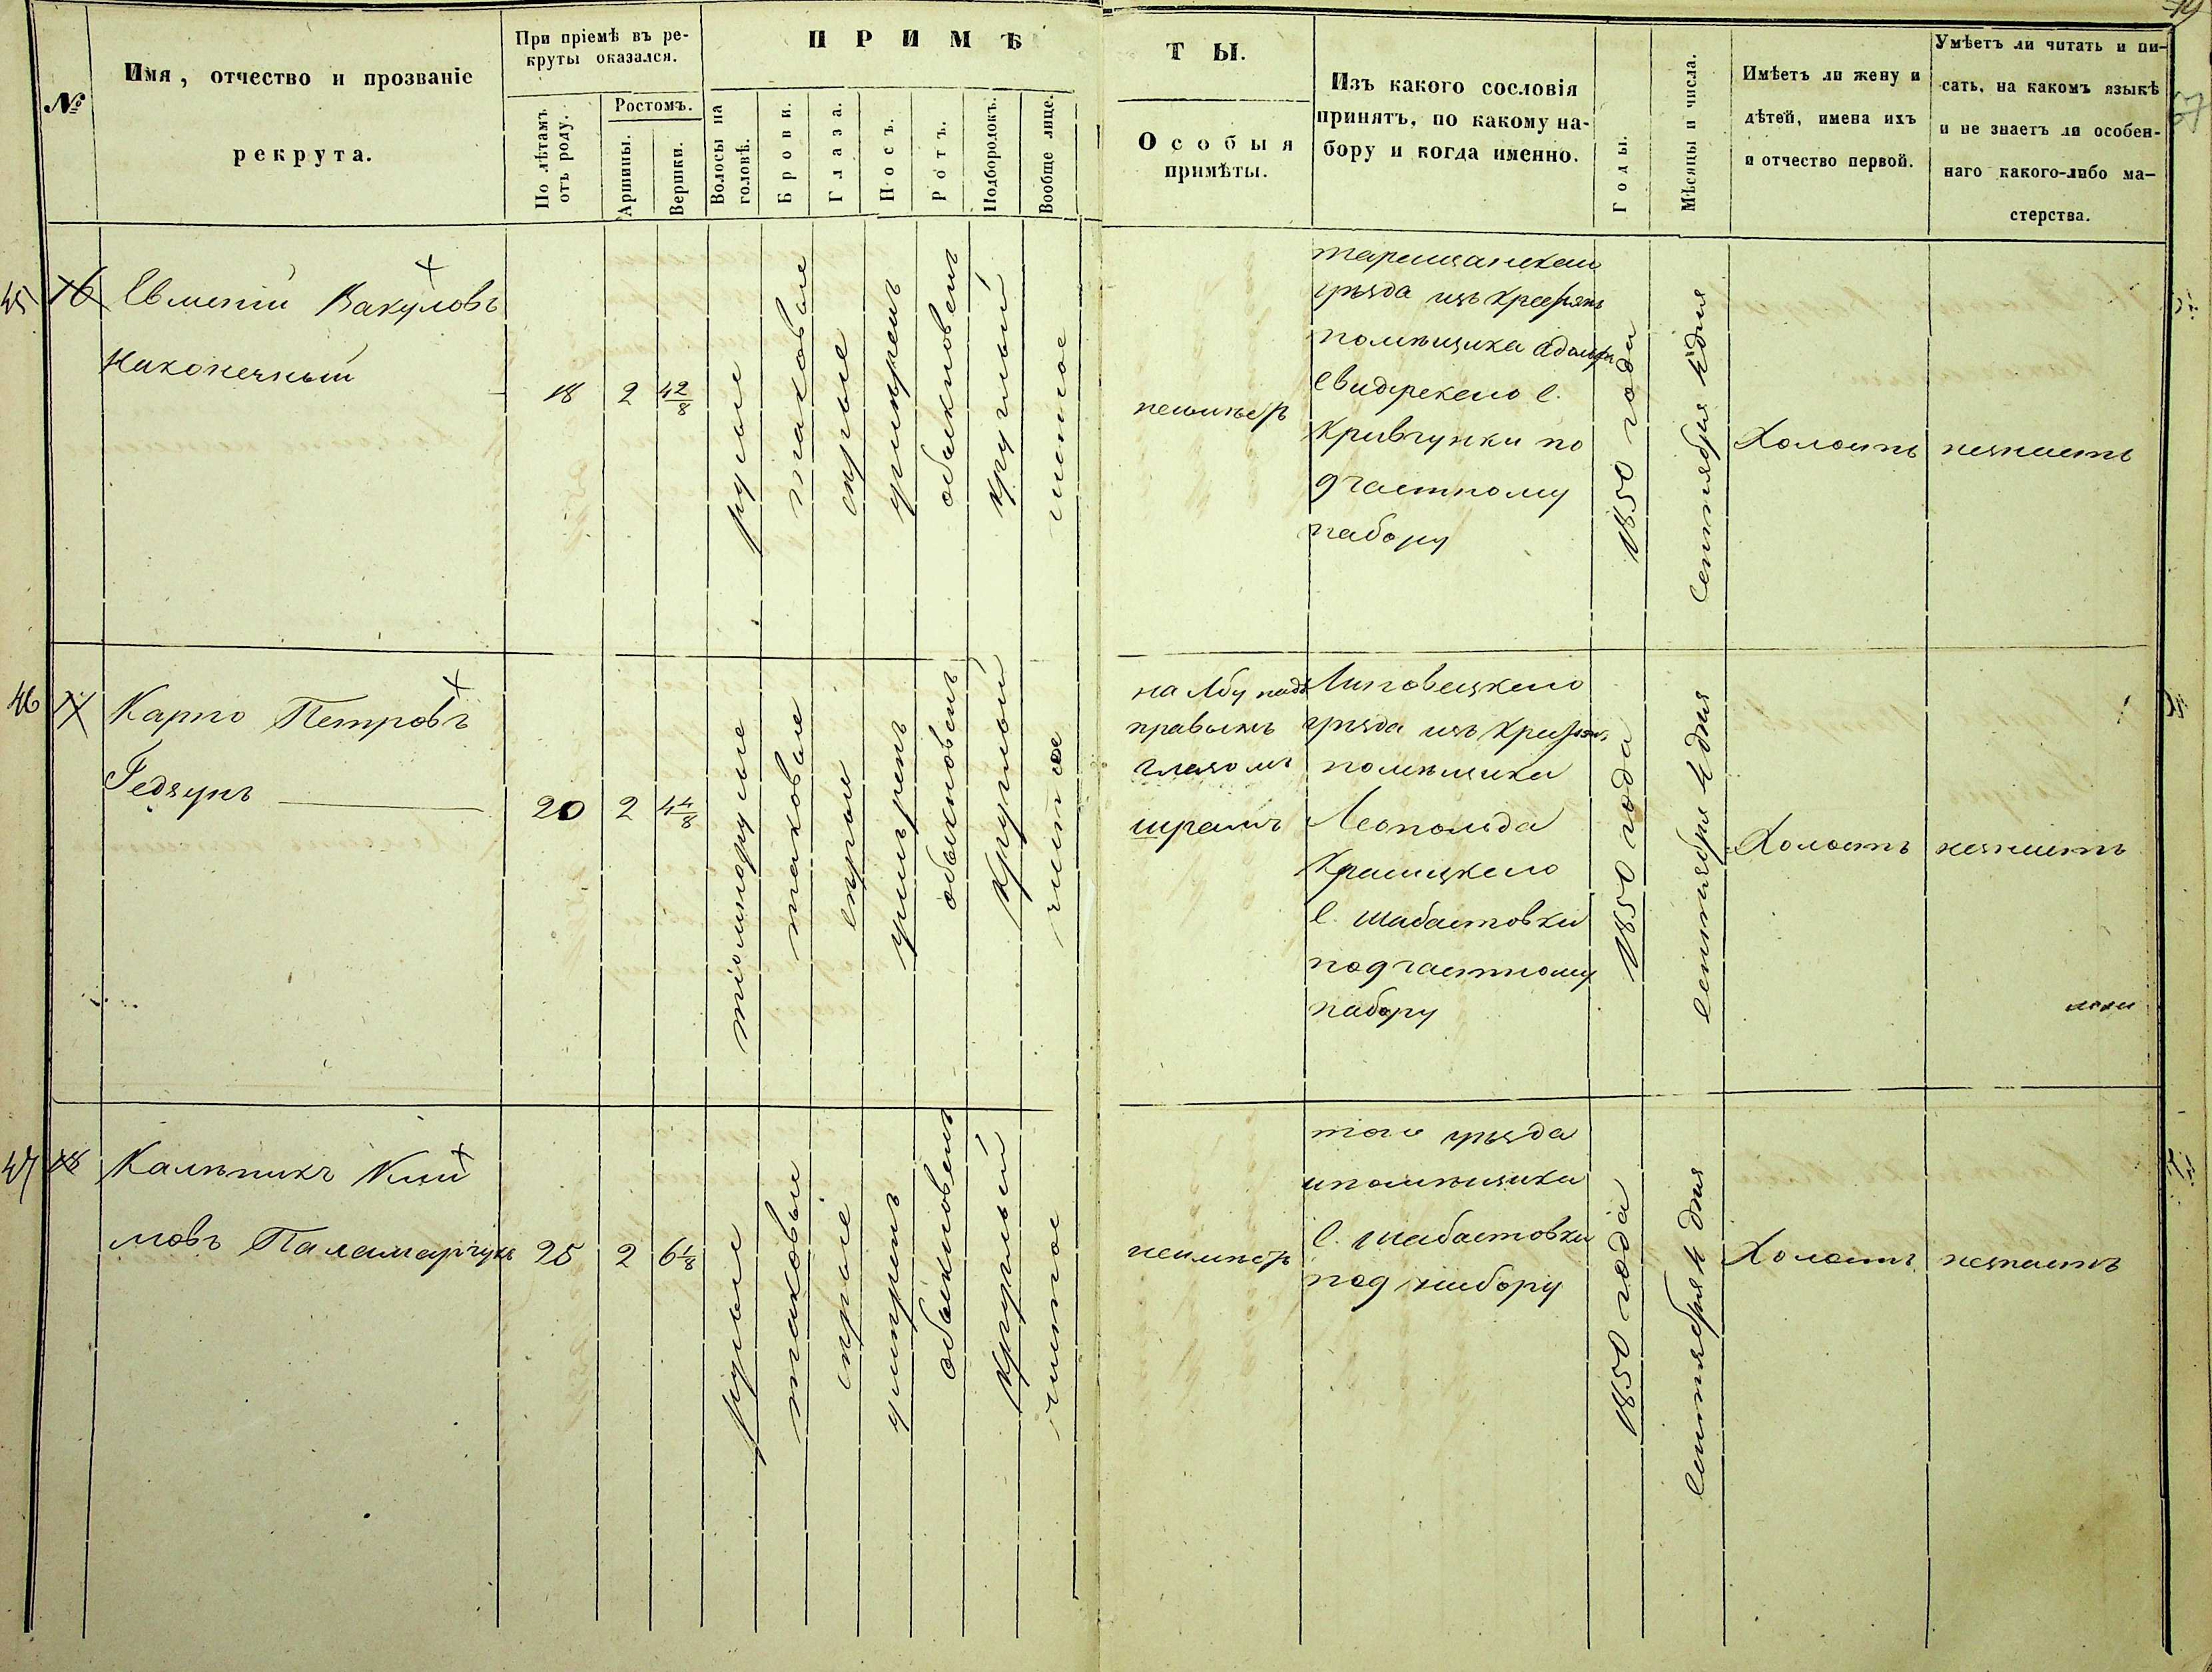 №
Имя, отчество и прозваніе
рекрута.
При пріемѣ въ ре-
круты оказался.
По лѣтамъ
отъ роду.
Ростомъ.
Аршины.
Вершки.
ПРИМѢ
Волосы на
головѣ.
Брови.
Глаза.
Носъ.
Ротъ.
Подбородокъ.
Вообще лице.
ТЫ.
Особыя
примѣты.
Изъ какого сословія
принятъ, по какому на-
бору и когда именно.
Годы.
Мѣсяцы и числа.
Имѣетъ ли жену и
дѣтей, имена ихъ
и отчество первой.
Умѣетъ ли читать и пи-
сать, на какомъ языкѣ
и не знаетъ ли особен-
наго какого-либо ма-
стерства.
45
16
Евменій Вакуловъ
Наконечный
18
2
4 2/8
русые
таковые
сѣрые
умѣренъ
обыкновенъ
круглый
чистое
неимѣетъ
таращанскаго
уѣзда изъ крестянъ
помѣщика Адольфа
с.
Кривчунки по
9 частному
набору
1850 года
Сентября 4 дня
Холостъ
незнаетъ
46
17
Карпо Петровъ
Гедзунъ
20
2
4 4/8
тіомнорусые
таковые
сѣрые
умѣренъ
обыкновенъ
круглый
чистое
на лбу надъ
правымъ
глазомъ
шрамъ
Липовецкаго
уѣзда изъ крестянъ
помѣщика
Леопольда
Красицкаго
с. Шабастовки
по 9 частному
набору
1850 года
сентября 4 дня
Холостъ
незнаетъ
47
18
Калѣникъ Кли
мовъ Паламарчукъ
25
2
6 1/8
русые
таковые
сѣрые
умѣренъ
обыкновенъ
круглый
чистое
неимѣетъ
того уѣзда
ипомѣщика
с. Шабастовки
по 9 набору
1850 года
Сентября 4 дня
Холостъ
незнаетъ